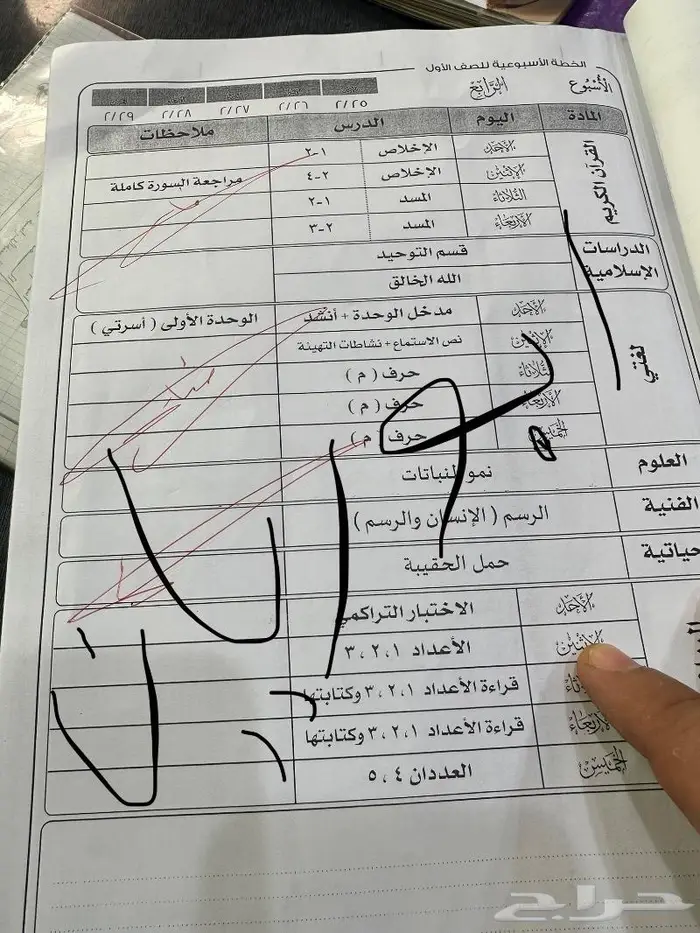 الخطة الأسبوعية للصف الأول
الأسبوع الرابع
٢/٢٥ ٢/٢٦ ٢/٢٧ ٢/٢٨ ٢/٢٩
المادة اليوم الدرس ملاحظات
القرآن الكريم
الأحد الإخلاص ١-٢
الإثنين الإخلاص ٢-٤ مراجعة السورة كاملة
الثلاثاء المسد ١-٢
الأربعاء المسد ٢-٣
الدراسات الإسلامية
قسم التوحيد
الله الخالق
لغتي
الأحد مدخل الوحدة + أنشد الوحدة الأولى ( أسرتي )
الإثنين نص الاستماع + نشاطات التهيئة
الثلاثاء حرف ( م )
الأربعاء حرف ( م )
الخميس حرف ( م )
العلوم نمو النباتات
الفنية الرسم ( الإنسان والرسم )
حياتية حمل الحقيبة
الأحد الاختبار التراكمي
الإثنين الأعداد ١، ٢، ٣
الثلاثاء قراءة الأعداد ١، ٢، ٣ وكتابتها
الأربعاء قراءة الأعداد ١، ٢، ٣ وكتابتها
الخميس العددان ٤، ٥
حراج